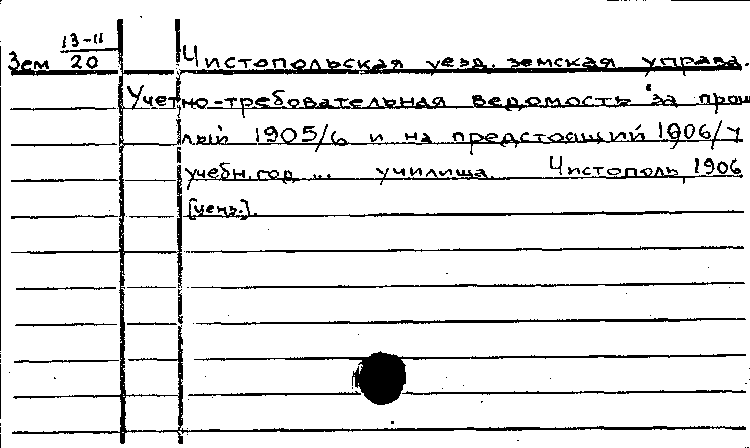 Зем 13-11/20 Чистопольская уезд. земская управа.
Учетно-требовательная ведомость за прош
лый 1905/6 и на предстоящий 1906/7
учебн. год ... училища. Чистополь, 1906